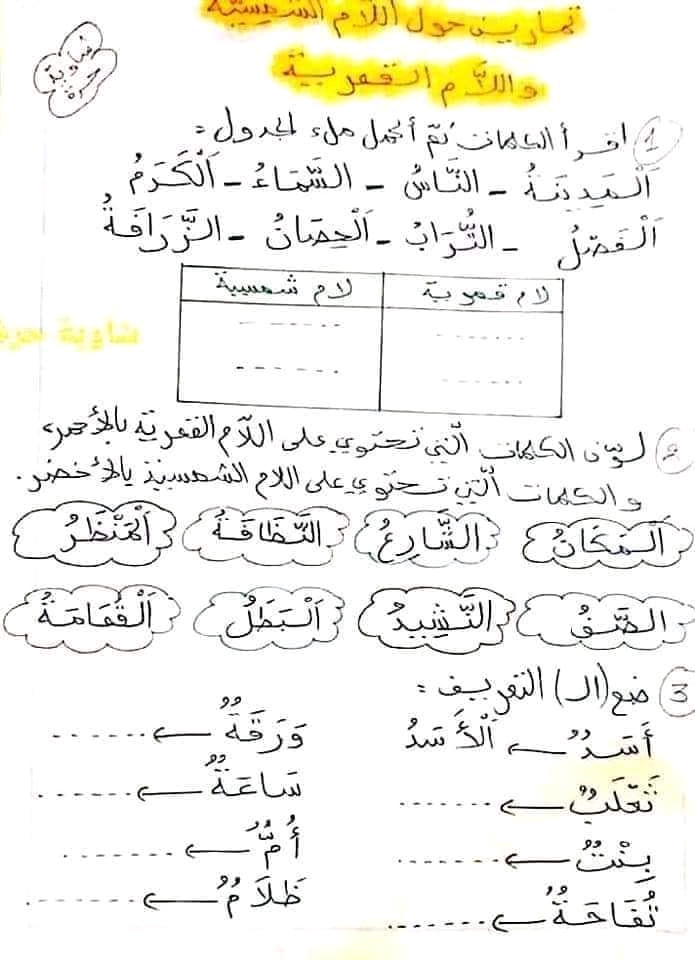 تمارين حول اللام الشمسية
واللاَّم القمرية
ضاوية حرة
1 اقرأ الكلمات ثمّ أكمل ملء الجدول:
اَلْمَدِينَةُ - النَّاسُ - الشَّمَاءُ - اَلْكَرَمُ
اَلْفَصْلُ - التُّرَابُ - اَلْحِصَانُ - الزَّرَافَةُ
لام قمرية لام شمسية
ضاوية حرة
2 لوّن الكلمات الّتي تحتوي على اللاّم القمرية بالأحمر،
و الكلمات الّتي تحتوي على اللام الشمسية بالأخضر.
اَلْمَكَانُ الشَّارِعُ النَّظَافَةُ اَلْمَنْظَرُ
الصَّفُ النَّشِيدُ اَلْبَطَلُ اَلْقُمَامَةُ
3 ضع (الـ) التعريف:
أَسَدٌ ← اَلْأَسَدُ وَرَقَةٌ ← .......
ثَعْلَبٌ ← ....... سَاعَةٌ ← .......
بِنْتٌ ← ....... أُمٌّ ← .......
تُفَاحَةٌ ← ....... ظَلَامٌ ← .......